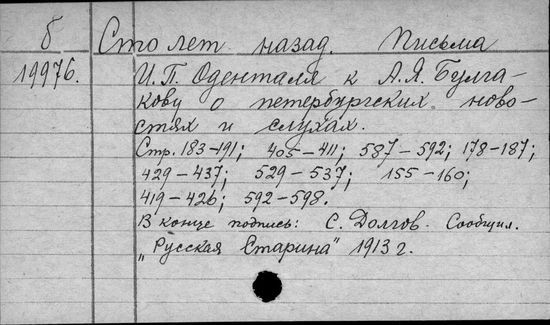 б Сто лет назад. Письма
19976. И.П. Оденталя к А.Я. Булга-
кову о петербургских ново-
стях и слухах.
Стр. 183-191; 405-411; 587-592; 178-187;
429-437; 529-537; 155-160;
419-426; 592-598.
В конце подпись: С. Долгов. Сообщил.
„Русская Старина" 1913 г.